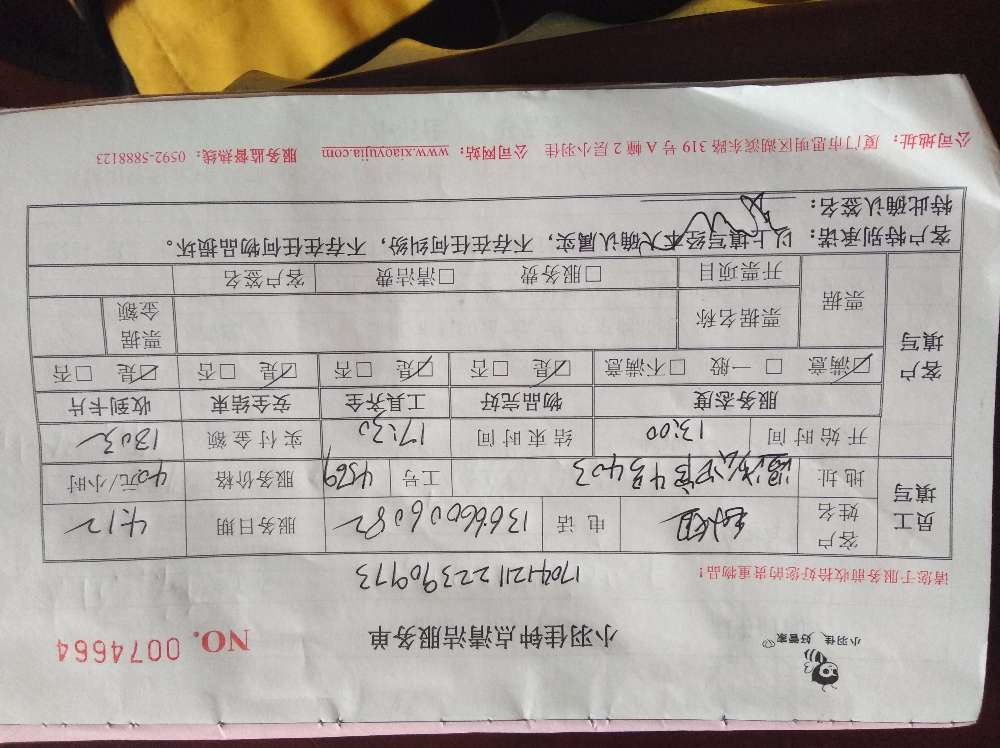 小羽佳、好管家
小羽佳钟点清洁服务单 NO. 0074664
请您于服务前收拾好您的贵重物品！ 17041211223909773
员工填写 客户姓名 电话 13666006082 服务日期 4.12
地址 4号403 工号 4569 服务价格 40元/小时
开始时间 13:00 结束时间 17:30 实付金额
客户填写 服务态度 物品完好 工具齐全 安全结束 收到卡片
☑满意 □一般 □不满意 ☑是 □否 ☑是 □否 ☑是 □否 ☑是 □否
票据 票据名称 票据金额
开票项目 □服务费 □清洁费 客户签名
客户特别承诺： 以上填写经本人确认属实，不存在任何纠纷，不存在任何物品损坏。
特此确认签名：
公司地址： 厦门市思明区湖滨东路 319 号 A 幢 2 层小羽佳 公司网站： www.xiaoyujia.com 服务监督热线：0592-5888123